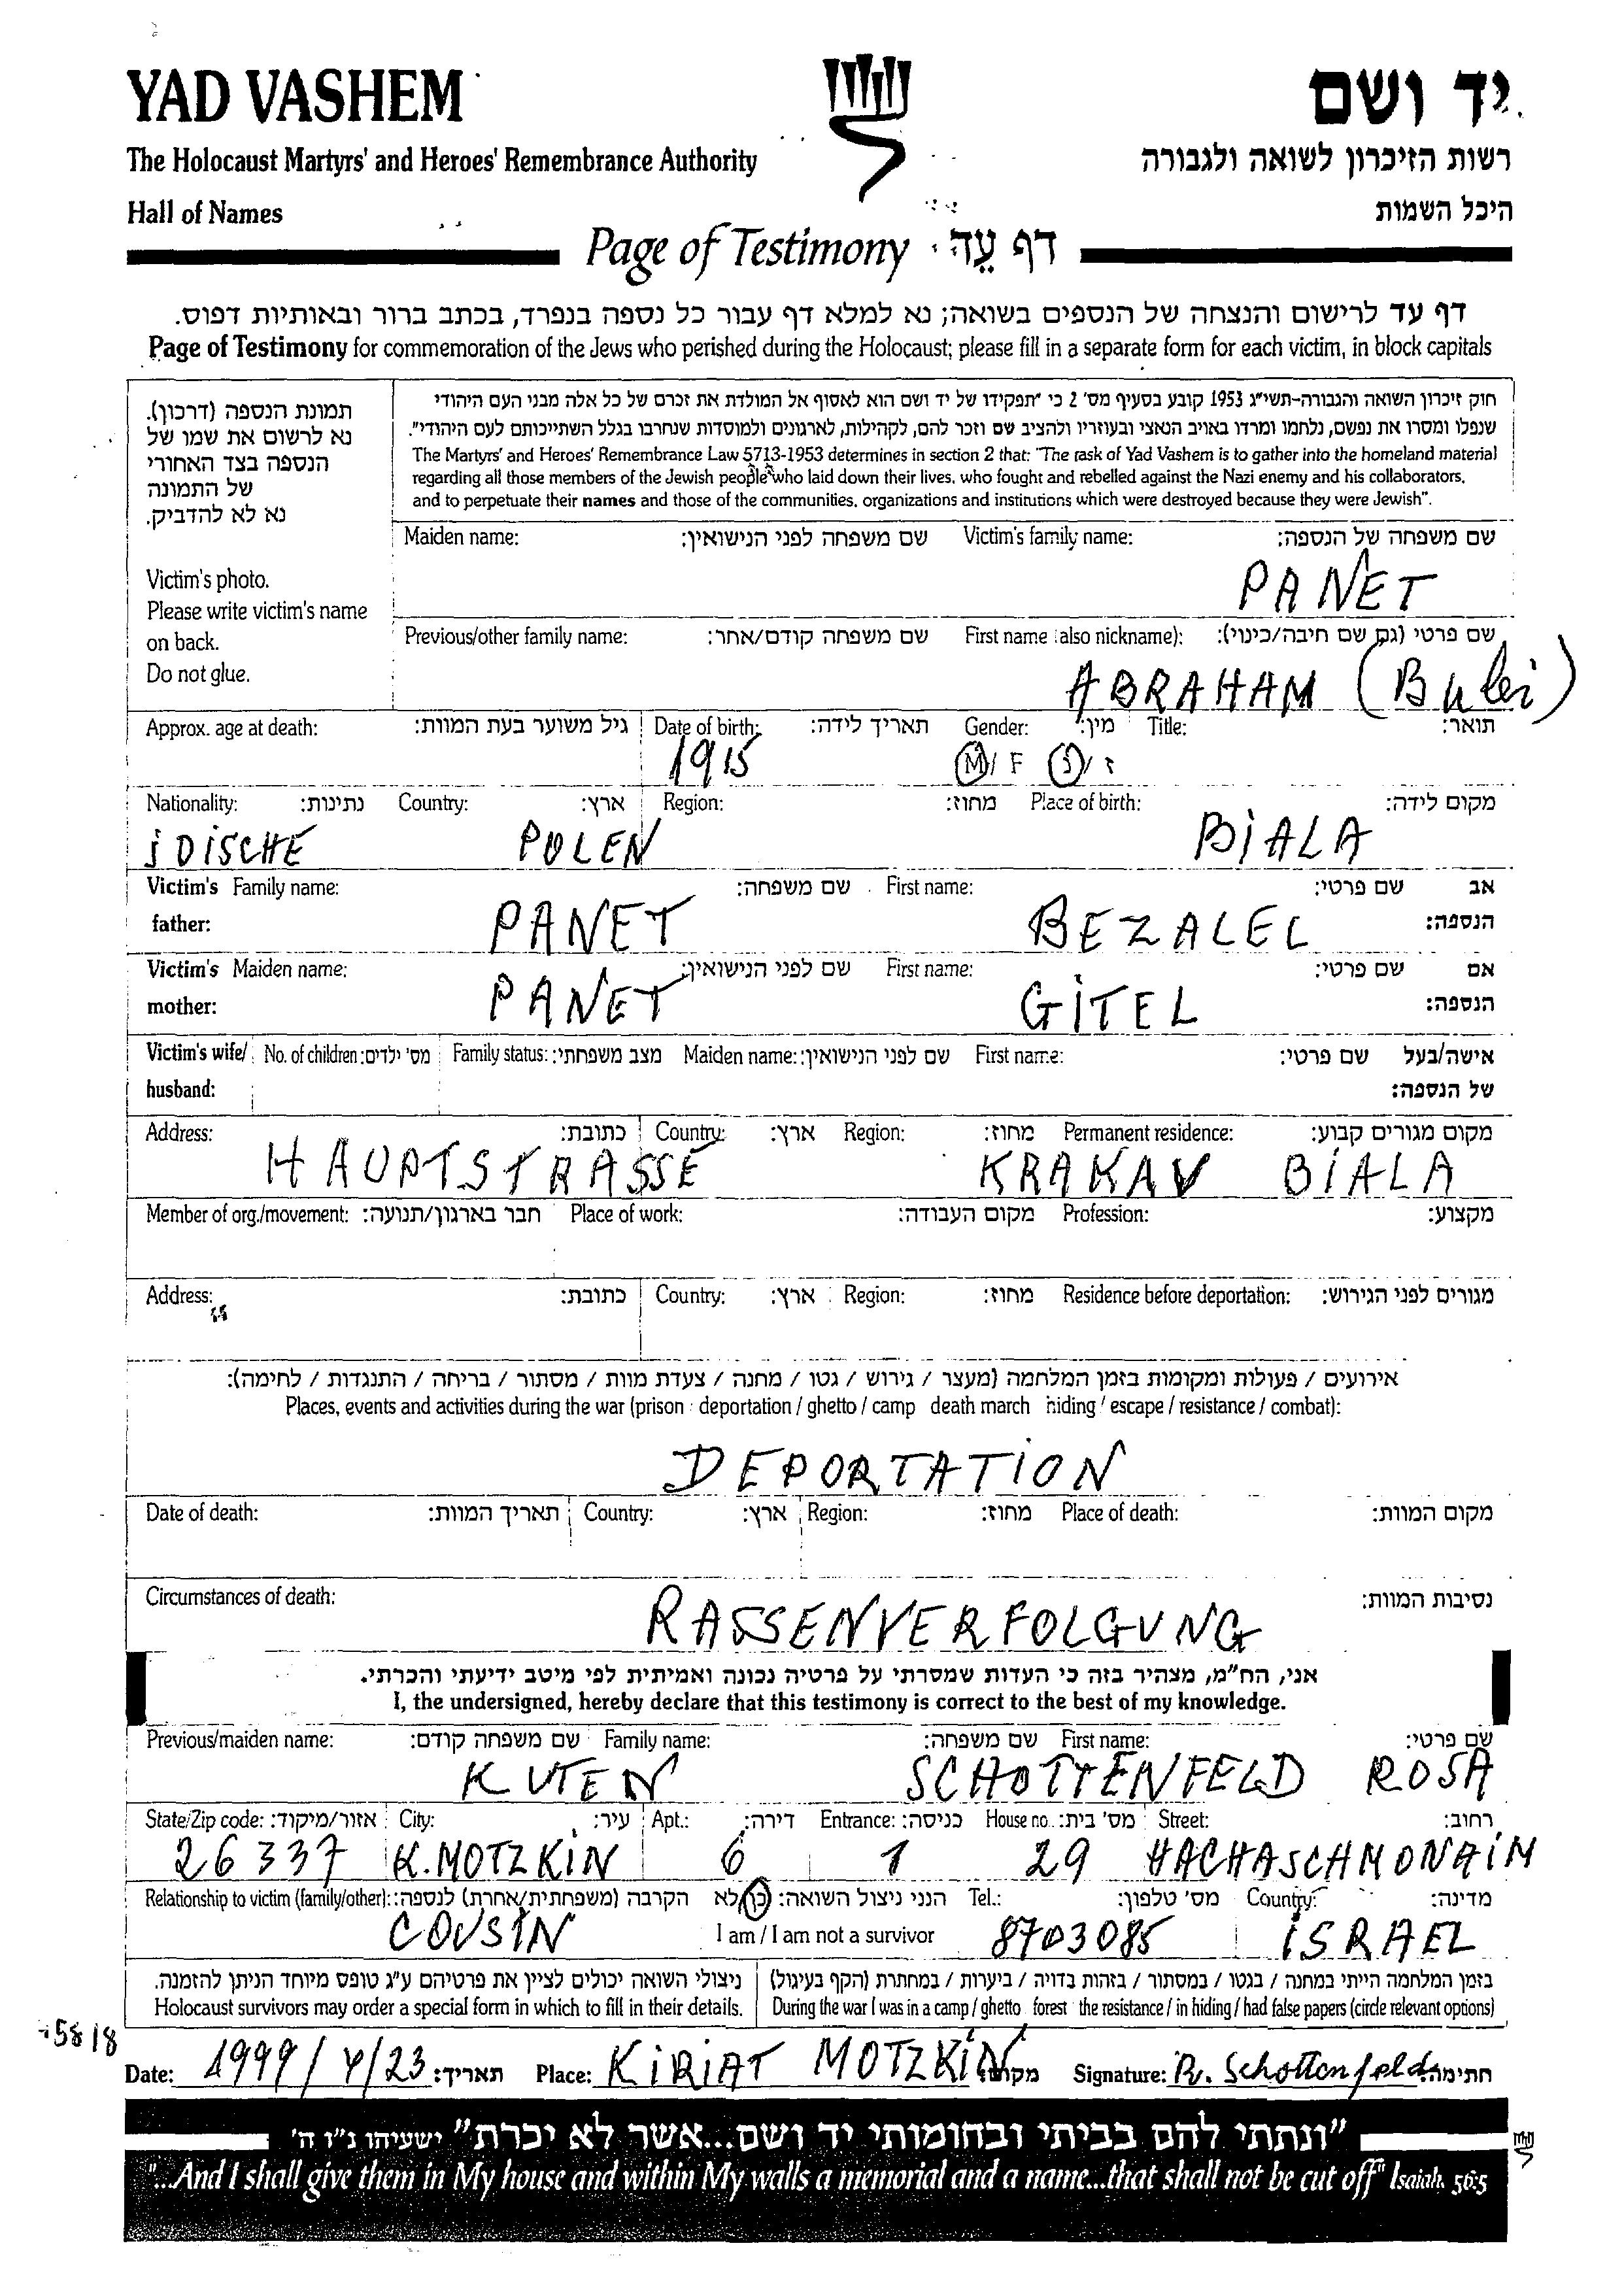 YAD VASHEM
יד ושם
The Holocaust Martyrs' and Heroes' Remembrance Authority
רשות הזיכרון לשואה ולגבורה
Hall of Names
היכל השמות
Page of Testimony דף עֵד
דף עד לרישום והנצחה של הנספים בשואה; נא למלא דף עבור כל נספה בנפרד, בכתב ברור ובאותיות דפוס.
Page of Testimony for commemoration of the Jews who perished during the Holocaust; please fill in a separate form for each victim, in block capitals
תמונת הנספה (דרכון).
נא לרשום את שמו של
הנספה בצד האחורי
של התמונה
נא לא להדביק.
Victim's photo.
Please write victim's name
on back.
Do not glue.
חוק זיכרון השואה והגבורה-תשי"ג 1953 קובע בסעיף מס' 2 כי "תפקידו של יד ושם הוא לאסוף אל המולדת את זכרם של כל אלה מבני העם היהודי
שנפלו ומסרו את נפשם, נלחמו ומרדו באויב הנאצי ובעוזריו ולהציב שם וזכר להם, לקהילות, לארגונים ולמוסדות שנחרבו בגלל השתייכותם לעם היהודי".
The Martyrs' and Heroes' Remembrance Law 5713-1953 determines in section 2 that: "The task of Yad Vashem is to gather into the homeland material
regarding all those members of the Jewish people who laid down their lives, who fought and rebelled against the Nazi enemy and his collaborators,
and to perpetuate their names and those of the communities, organizations and institutions which were destroyed because they were Jewish".
Maiden name: שם משפחה לפני הנישואין: Victim's family name: שם משפחה של הנספה:
PANET
Previous/other family name: שם משפחה קודם/אחר: First name (also nickname): שם פרטי (גם שם חיבה/כינוי):
ABRAHAM (Bulei)
Approx. age at death: גיל משוער בעת המוות: Date of birth: תאריך לידה: Gender: מין: Title: תואר:
1915 M / F ז / נ
Nationality: נתינות: Country: ארץ: Region: מחוז: Place of birth: מקום לידה:
iDISCHE POLEN BiALA
Victim's father: Family name: שם משפחה: First name: שם פרטי: אב הנספה:
PANET BEZALEL
Victim's mother: Maiden name: שם לפני הנישואין: First name: שם פרטי: אם הנספה:
PANET GiTEL
Victim's wife/ husband: No. of children: מס' ילדים: Family status: מצב משפחתי: Maiden name: שם לפני הנישואין: First name: שם פרטי: אישה/בעל של הנספה:
Address: כתובת: Country: ארץ: Region: מחוז: Permanent residence: מקום מגורים קבוע:
HAUPTSTRASSE KRAKAU BiALA
Member of org./movement: חבר בארגון/תנועה: Place of work: מקום העבודה: Profession: מקצוע:
Address: כתובת: Country: ארץ: Region: מחוז: Residence before deportation: מגורים לפני הגירוש:
אירועים / פעולות ומקומות בזמן המלחמה (מעצר / גירוש / גטו / מחנה / צעדת מוות / מסתור / בריחה / התנגדות / לחימה):
Places, events and activities during the war (prison / deportation / ghetto / camp / death march / hiding / escape / resistance / combat):
DEPORTATiON
Date of death: תאריך המוות: Country: ארץ: Region: מחוז: Place of death: מקום המוות:
Circumstances of death: נסיבות המוות:
RASSENVERFOLGUNG
אני, הח"מ, מצהיר בזה כי העדות שמסרתי על פרטיה נכונה ואמיתית לפי מיטב ידיעתי והכרתי.
I, the undersigned, hereby declare that this testimony is correct to the best of my knowledge.
Previous/maiden name: שם משפחה קודם: Family name: שם משפחה: First name: שם פרטי:
KUTEN SCHOTTENFELD ROSA
State/Zip code: אזור/מיקוד: City: עיר: Apt.: דירה: Entrance: כניסה: House no.: מס' בית: Street: רחוב:
26337 K. MOTZKIN 6 1 29 HACHASCHMONAiM
Relationship to victim (family/other): הקרבה (משפחתית/אחרת) לנספה: הנני ניצול השואה: כן לא Tel.: מס' טלפון: Country: מדינה:
COUSIN I am / I am not a survivor 8703085 iSRAEL
ניצולי השואה יכולים לציין את פרטיהם ע"ג טופס מיוחד הניתן להזמנה.
Holocaust survivors may order a special form in which to fill in their details.
בזמן המלחמה הייתי במחנה / בגטו / במסתור / בזהות בדויה / ביערות / במחתרת (הקף בעיגול)
During the war I was in a camp / ghetto / forest / the resistance / in hiding / had false papers (circle relevant options)
Date: 1999/4/23 תאריך: Place: KiRiAT MOTZKiN מקום: Signature: R. Schottenfeld חתימה:
"ונתתי להם בביתי ובחומותי יד ושם...אשר לא יכרת" ישעיהו נ"ו ה'
"...And I shall give them in My house and within My walls a memorial and a name...that shall not be cut off" Isaiah, 56:5